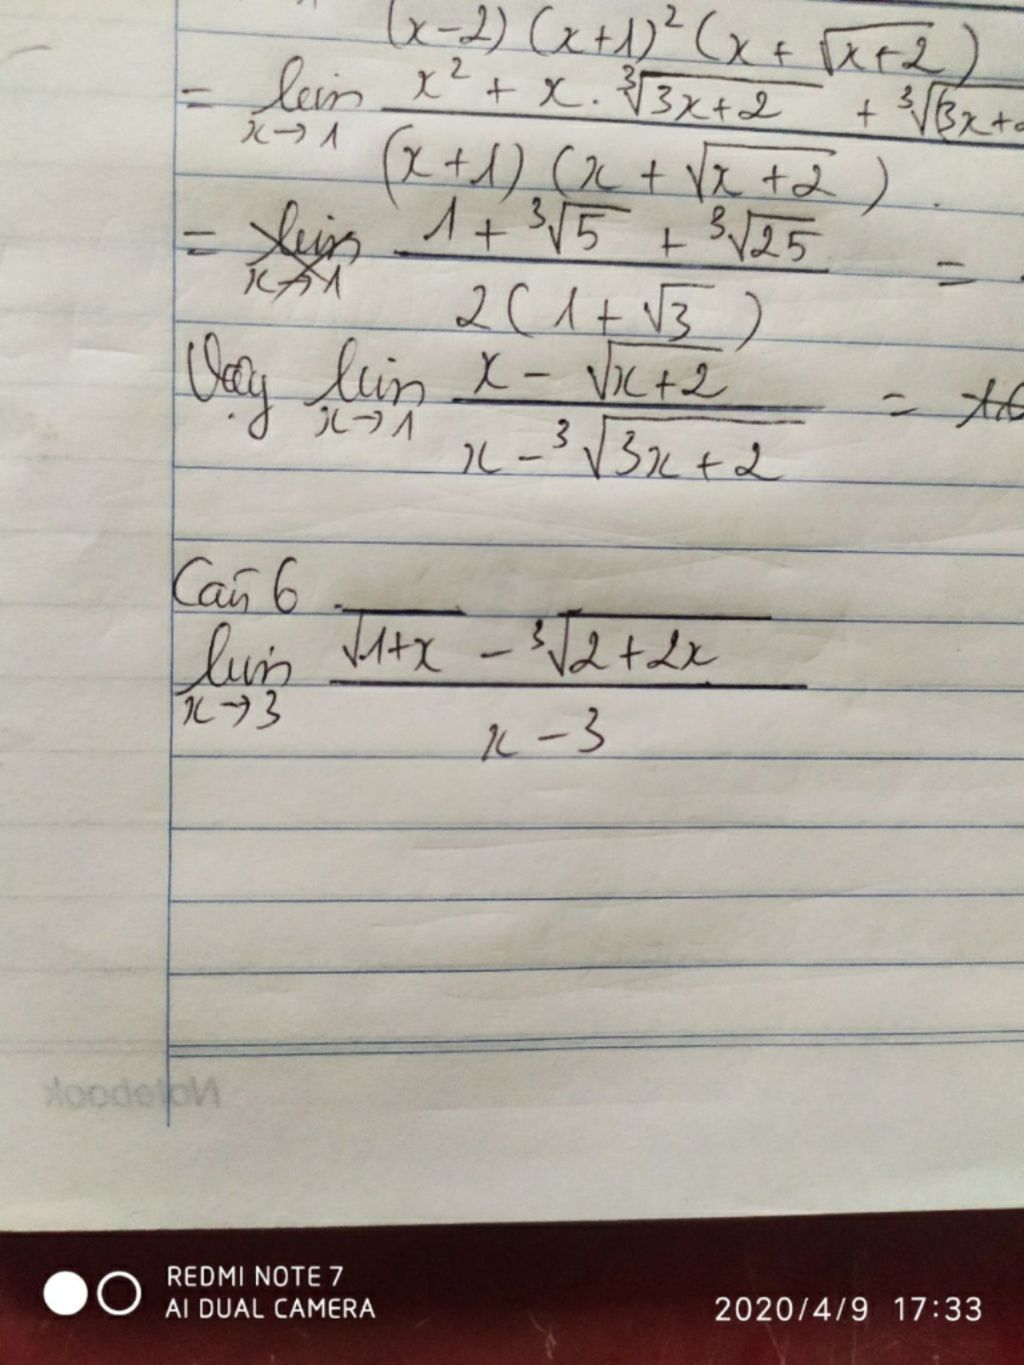 (x-2) (x+1)² (x + √(x+2))
= lim x→1 x² + x . ³√(3x+2) + ³√(3x+2
(x+1) (x + √(x+2)) .
= lim x→1 1 + ³√5 + ³√25 =
2(1 + √3)
Vậy lim x→1 x - √(x+2) =
x - ³√(3x+2)
Câu 6
lim x→3 √(1+x) - ³√(2+2x)
x - 3
Notebook
REDMI NOTE 7
AI DUAL CAMERA
2020/4/9 17:33